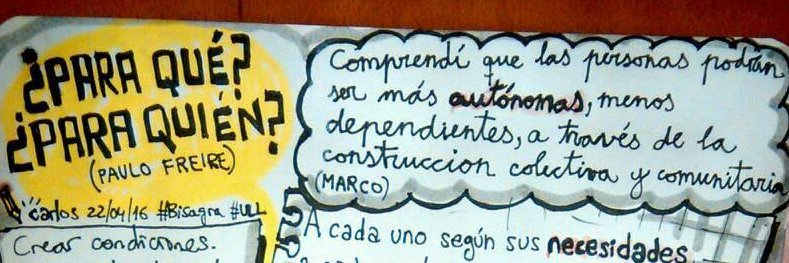 ¿PARA QUÉ?
¿PARA QUIÉN?
(PAULO FREIRE)
Carlos 22/04/16 #Bisagra #ULL
Crear condiciones.
Comprendí que las personas podrán
ser más autónomas, menos
dependientes, a través de la
construccion colectiva y comunitaria
(MARCO)
A cada uno según sus necesidades